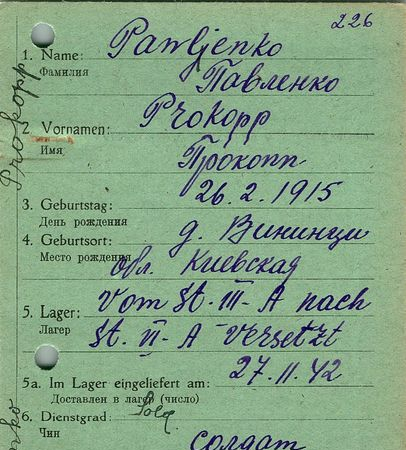 226
1. Name: Pawljenko
Фамилия
Павленко
2. Vornamen: Prokopp
Имя
Прокопп
26.2.1915
3. Geburtstag:
День рождения
4. Geburtsort: д. Вининци
Место рождения обл. Киевская
5. Lager: Vom St. III-A nach
Лагер St. VI-A versetzt
27.11.42
5a. Im Lager eingeliefert am:
Доставлен в лагер (число)
6. Dienstgrad: Sold
Чин
солдат
Prokopp